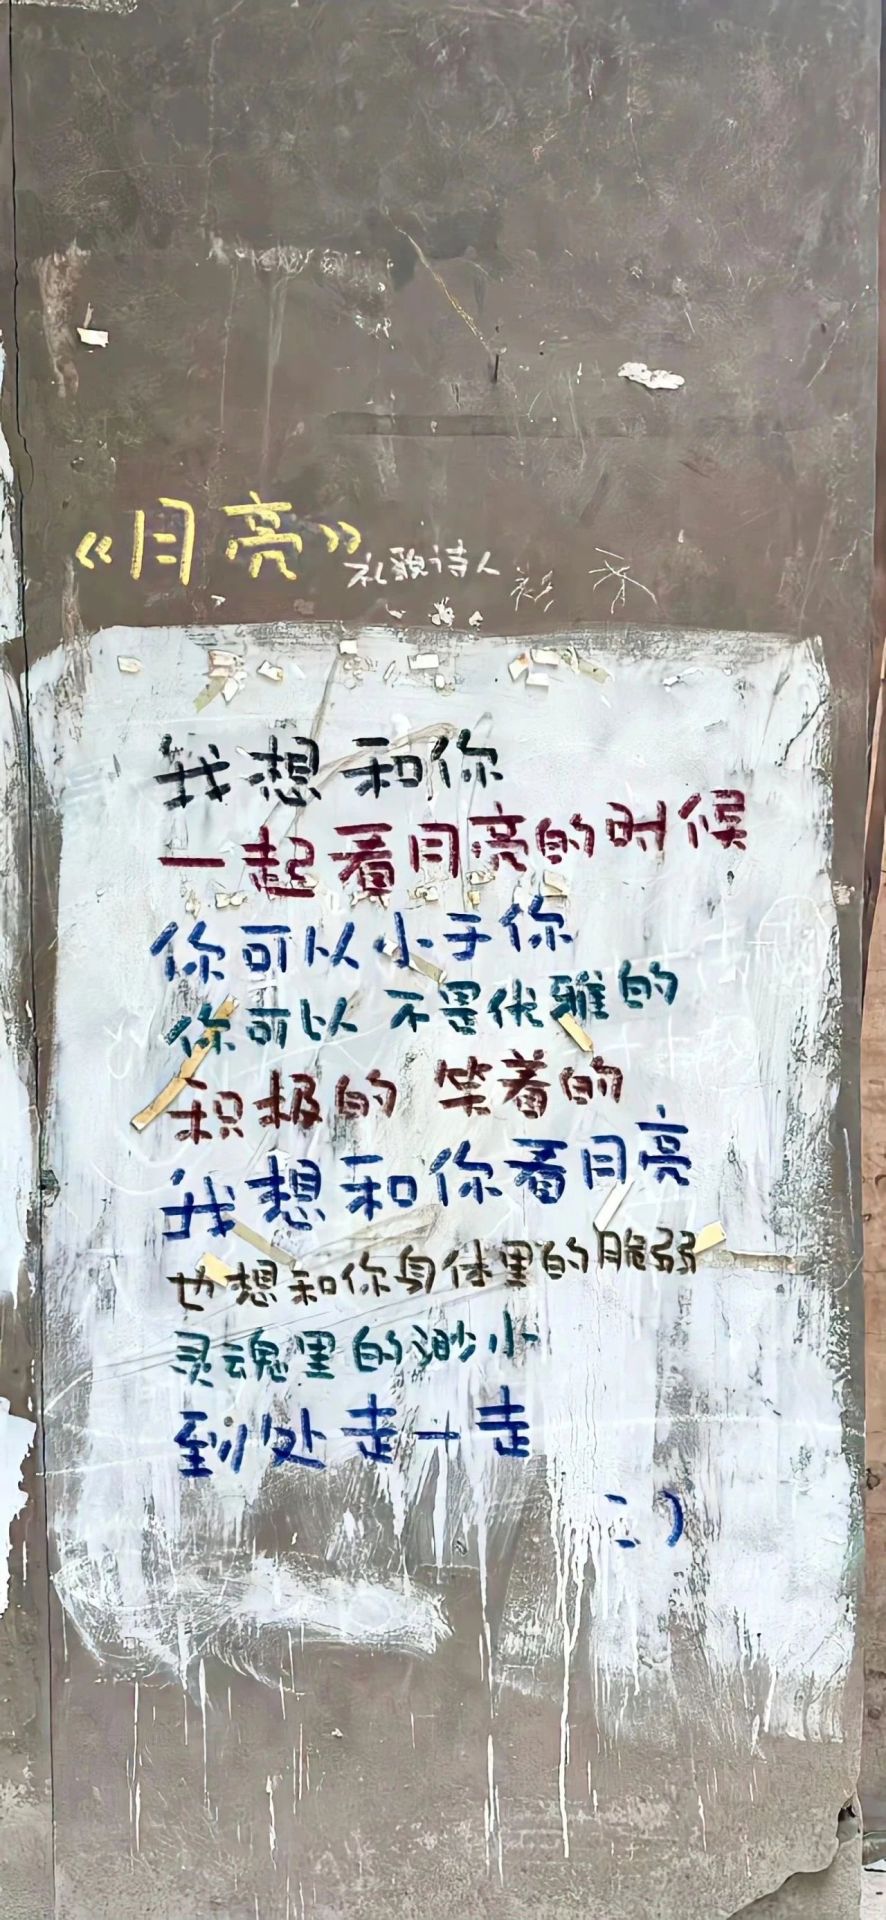 《月亮》
礼貌诗人
我想和你
一起看月亮的时候
你可以小于你
你可以不是优雅的
积极的 笑着的
我想和你看月亮
也想和你身体里的脆弱
灵魂里的渺小
到处走一走
:)